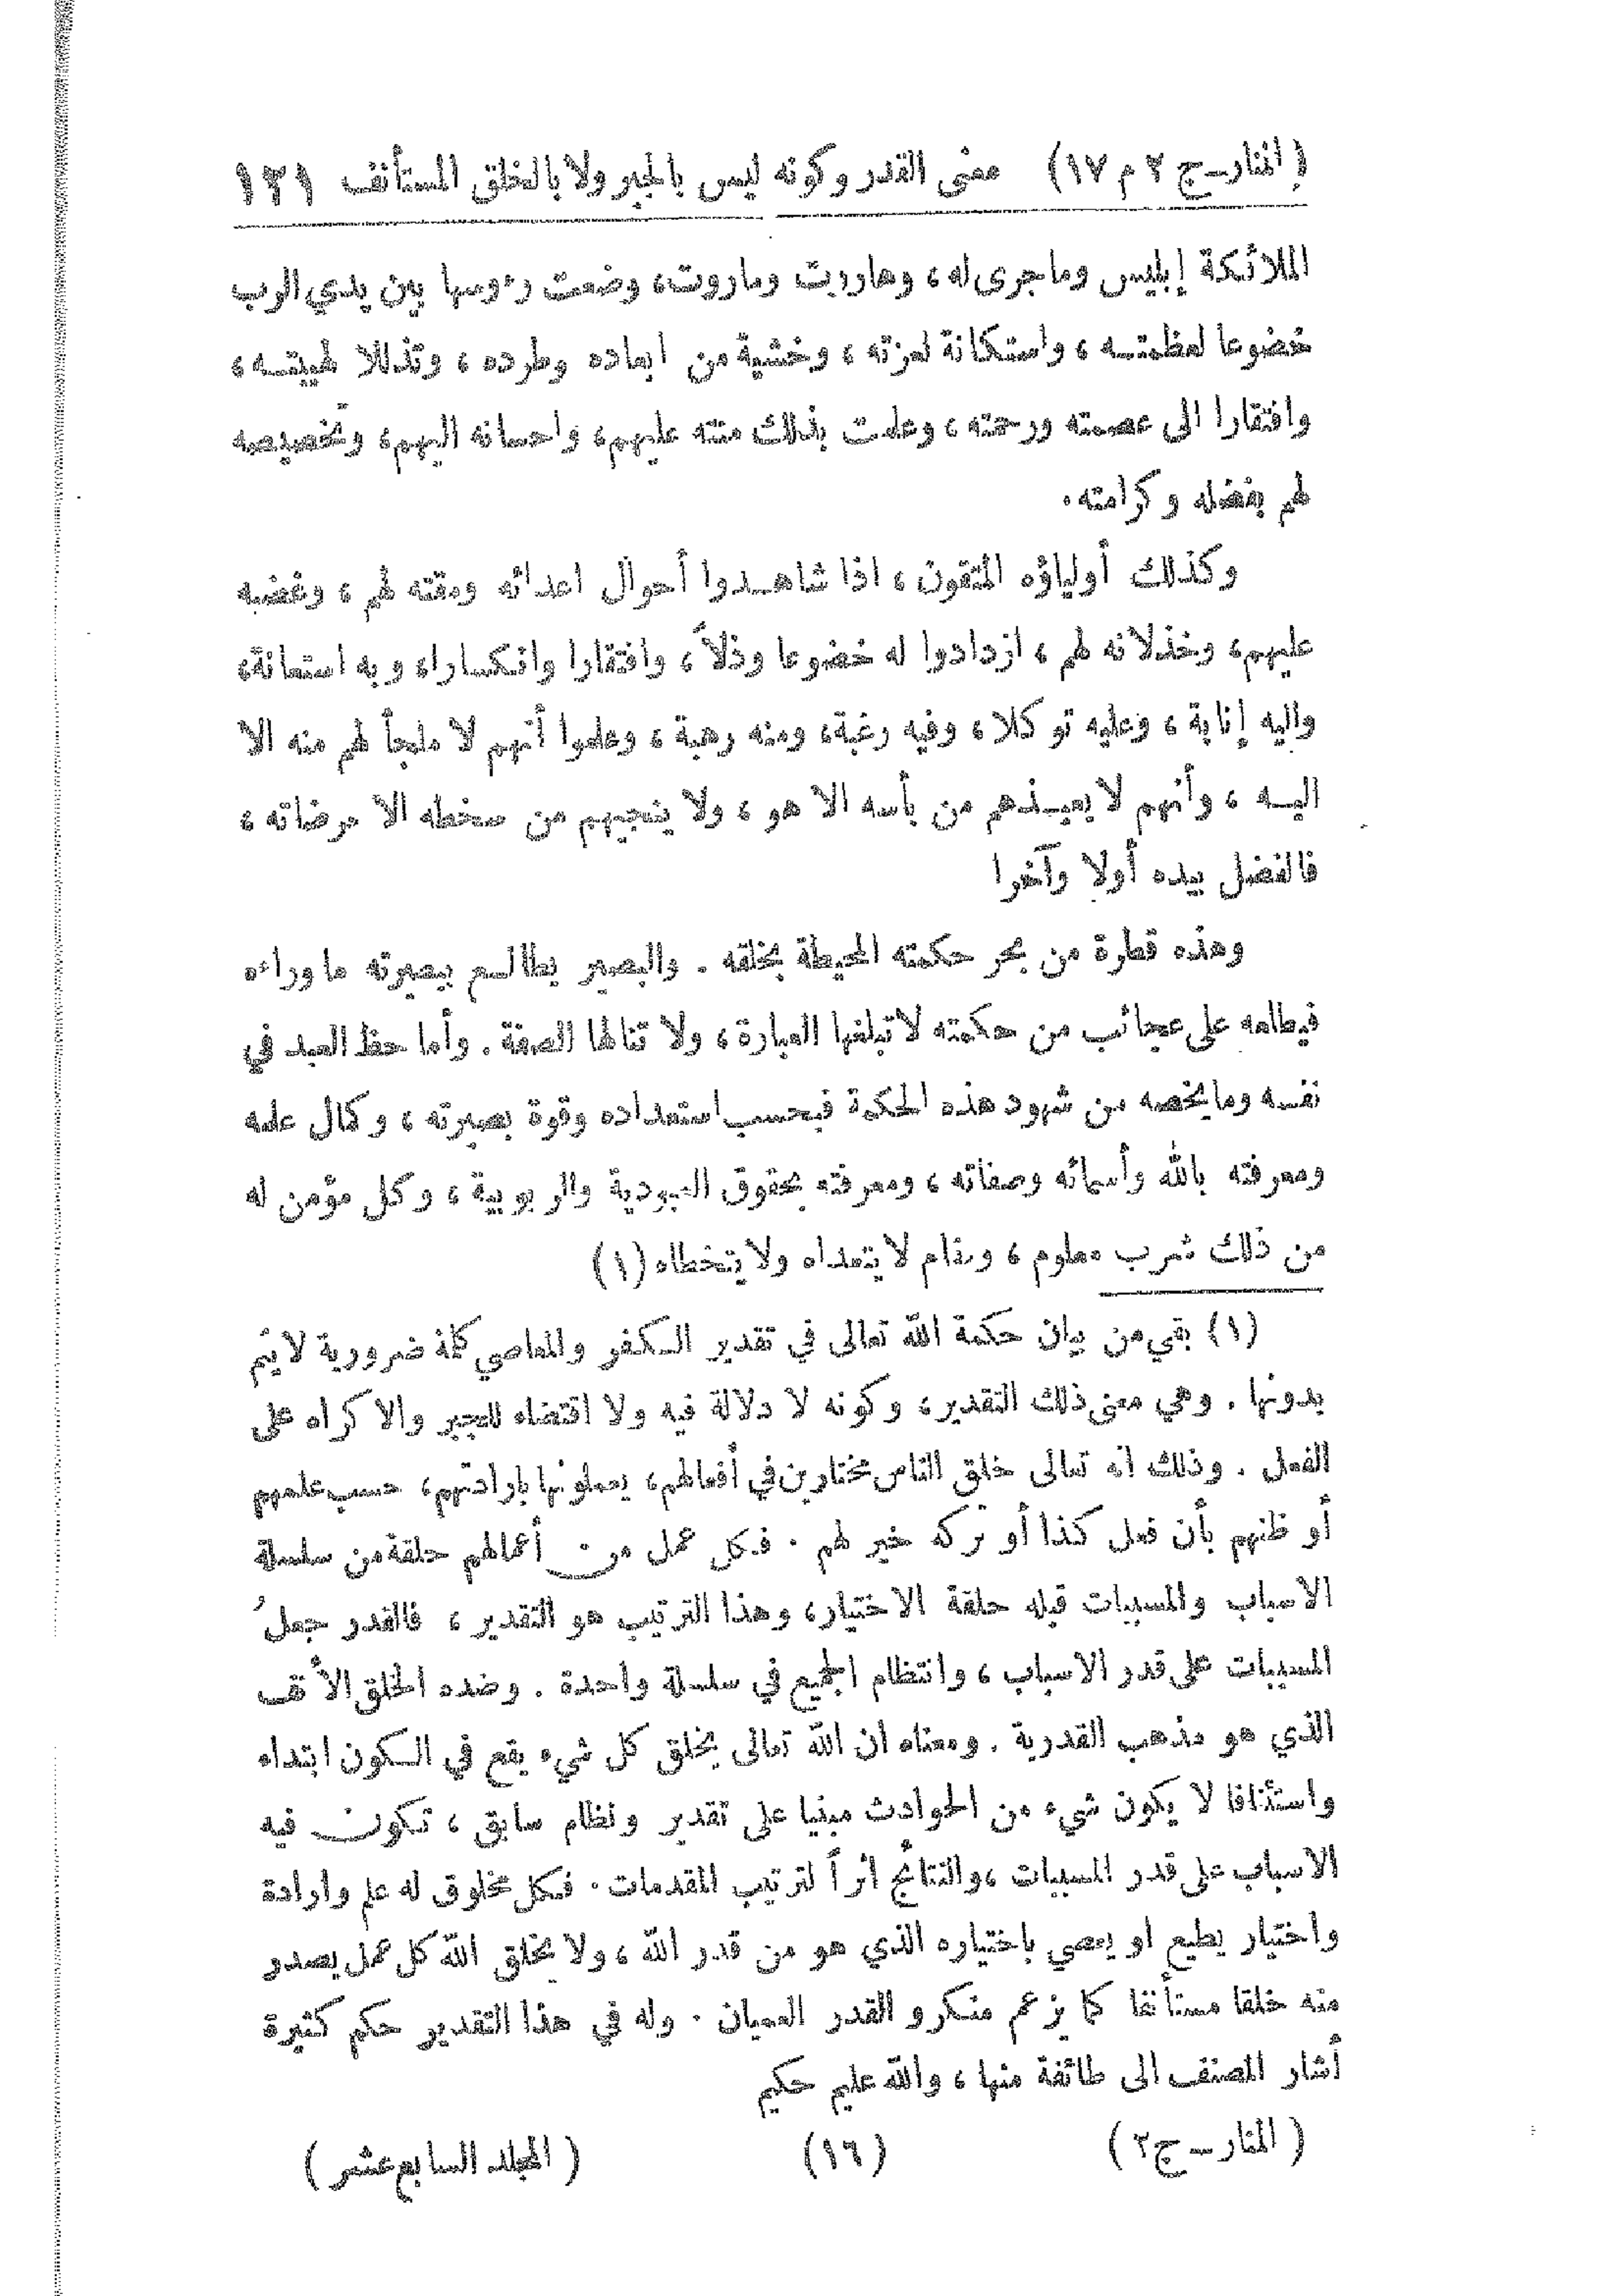 (المنار–ج ٢ م ١٧) معنى القدر وكونه ليس بالجبر ولا بالخلق المستأنف ١٢١
الملائكة إبليس وماجرى له، وهاروت وماروت، وضعت رءوسها بين يدي الرب
خضوعا لعظمته، واستكانة لعزته، وخشية من ابعاده وطرده، وتذللا لهيبته،
وافتقارا الى عصمته ورحمته، وعلمت بذلك منته عليهم، واحسانه اليهم، وتخصيصه
لهم بفضله وكرامته.
وكذلك أولياؤه المتقون، اذا شاهدوا أحوال اعدائه ومقته لهم، وغضبه
عليهم، وخذلانه لهم، ازدادوا له خضوعا وذلاً، وافتقارا وانكسارا، وبه استعانة،
واليه إنابة، وعليه توكلا، وفيه رغبة، ومنه رهبة، وعلموا أنهم لا ملجأ لهم منه الا
اليه، وأنهم لا يعيذهم من بأسه الا هو، ولا ينجيهم من سخطه الا مرضاته،
فالفضل بيده أولا وآخرا
وهذه قطرة من بحر حكمته المحيطة بخلقه. والبصير يطالع ببصيرته ما وراءه
فيطلعه على عجائب من حكمته لا تبلغها العبارة، ولا تنالها الصفة. وأما حظ العبد في
نفسه وما يخصه من شهود هذه الحكمة فبحسب استعداده وقوة بصيرته، وكمال علمه
ومعرفته بالله وأسمائه وصفاته، ومعرفته بحقوق العبودية والربوبية، وكل مؤمن له
من ذلك شرب معلوم، ومقام لا يتعداه ولا يتخطاه (١)
(١) بقي من بيان حكمة الله تعالى في تقدير الكفر والمعاصي كلمة ضرورية لا يتم
بدونها. وهي معنى ذلك التقدير، وكونه لا دلالة فيه ولا اقتضاء للجبر والاكراه على
الفعل. وذلك انه تعالى خلق الناس مختارين في أفعالهم، يعملونها بإرادتهم، حسب علمهم
أو ظنهم بأن فعل كذا أو تركه خير لهم. فكل عمل من أعمالهم حلقة من سلسلة
الاسباب والمسببات قبله حلقة الاختيار، وهذا الترتيب هو التقدير، فالقدر جعلُ
المسببات على قدر الاسباب، وانتظام الجميع في سلسلة واحدة. وضده الخلق الأنف
الذي هو مذهب القدرية. ومعناه ان الله تعالى يخلق كل شيء يقع في الكون ابتداء
واستئنافا لا يكون شيء من الحوادث مبنيا على تقدير ونظام سابق، تكون فيه
الاسباب على قدر المسببات، والنتائج اثراً لترتيب المقدمات. فكل مخلوق له علم وارادة
واختيار يطيع او يعصي باختياره الذي هو من قدر الله، ولا يخلق الله كل عمل يصدر
منه خلقا مستأنفا كما يزعم منكرو القدر العميان. وله في هذا التقدير حكم كثيرة
أشار المصنف الى طائفة منها، والله عليم حكيم
(المنار–ج٢) (١٦) (المجلد السابع عشر)